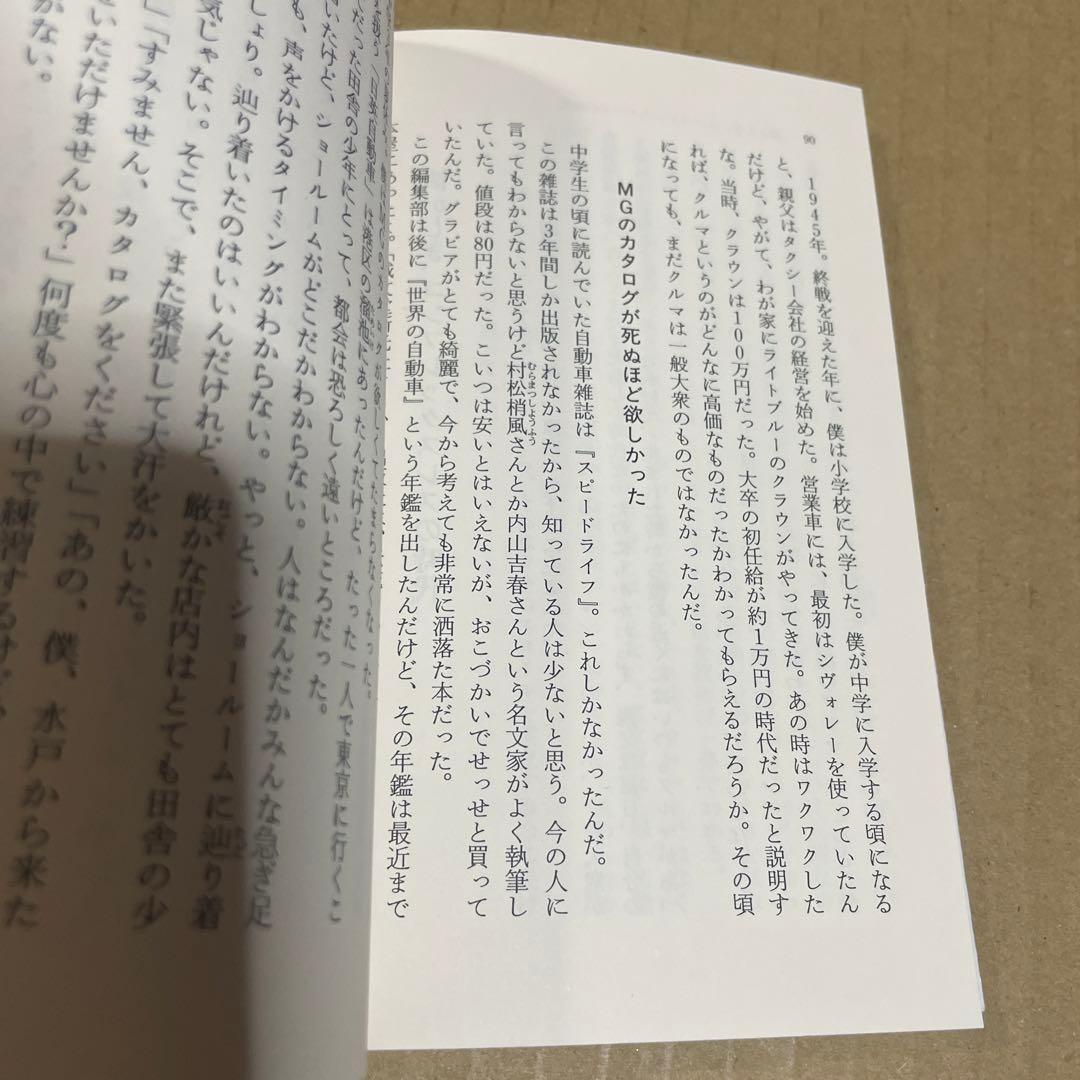 90
1945年。終戦を迎えた年に、僕は小学校に入学した。僕が中学に入学する頃になる
と、親父はタクシー会社の経営を始めた。営業車には、最初はシヴォレーを使っていたん
だけど、やがて、わが家にライトブルーのクラウンがやってきた。あの時はワクワクした
な。当時、クラウンは100万円だった。大卒の初任給が約1万円の時代だったと説明す
れば、クルマというのがどんなに高価なものだったかわかってもらえるだろうか。その頃
になっても、まだクルマは一般大衆のものではなかったんだ。
MGのカタログが死ぬほど欲しかった
中学生の頃に読んでいた自動車雑誌は『スピードライフ』。これしかなかったんだ。
この雑誌は3年間しか出版されなかったから、知っている人は少ないと思う。今の人に
言ってもわからないと思うけど村松梢風さんとか内山吉春さんという名文家がよく執筆し
ていた。値段は80円だった。こいつは安いとはいえないが、おこづかいでせっせと買って
いたんだ。グラビアがとても綺麗で、今から考えても非常に洒落た本だった。
この編集部は後に『世界の自動車』という年鑑を出したんだけど、その年鑑は最近まで
が欲しくてたまらなくなった。
「日英自動車」は港区の溜池にあったんだけど、たった一人で東京に行くこ
だった田舎の少年にとって、都会は恐ろしく遠いところだった。
いたけど、ショールームがどこだかわからない。人はなんだかみんな急ぎ足
も、声をかけるタイミングがわからない。やっと、ショールームに辿り着
しょり。辿り着いたのはいいんだけれど、厳かな店内はとても田舎の少
気じゃない。そこで、また緊張して大汗をかいた。
」「すみません、カタログをください」「あの、僕、水戸から来た
いただけませんか？」何度も心の中で練習するけど、
がない。